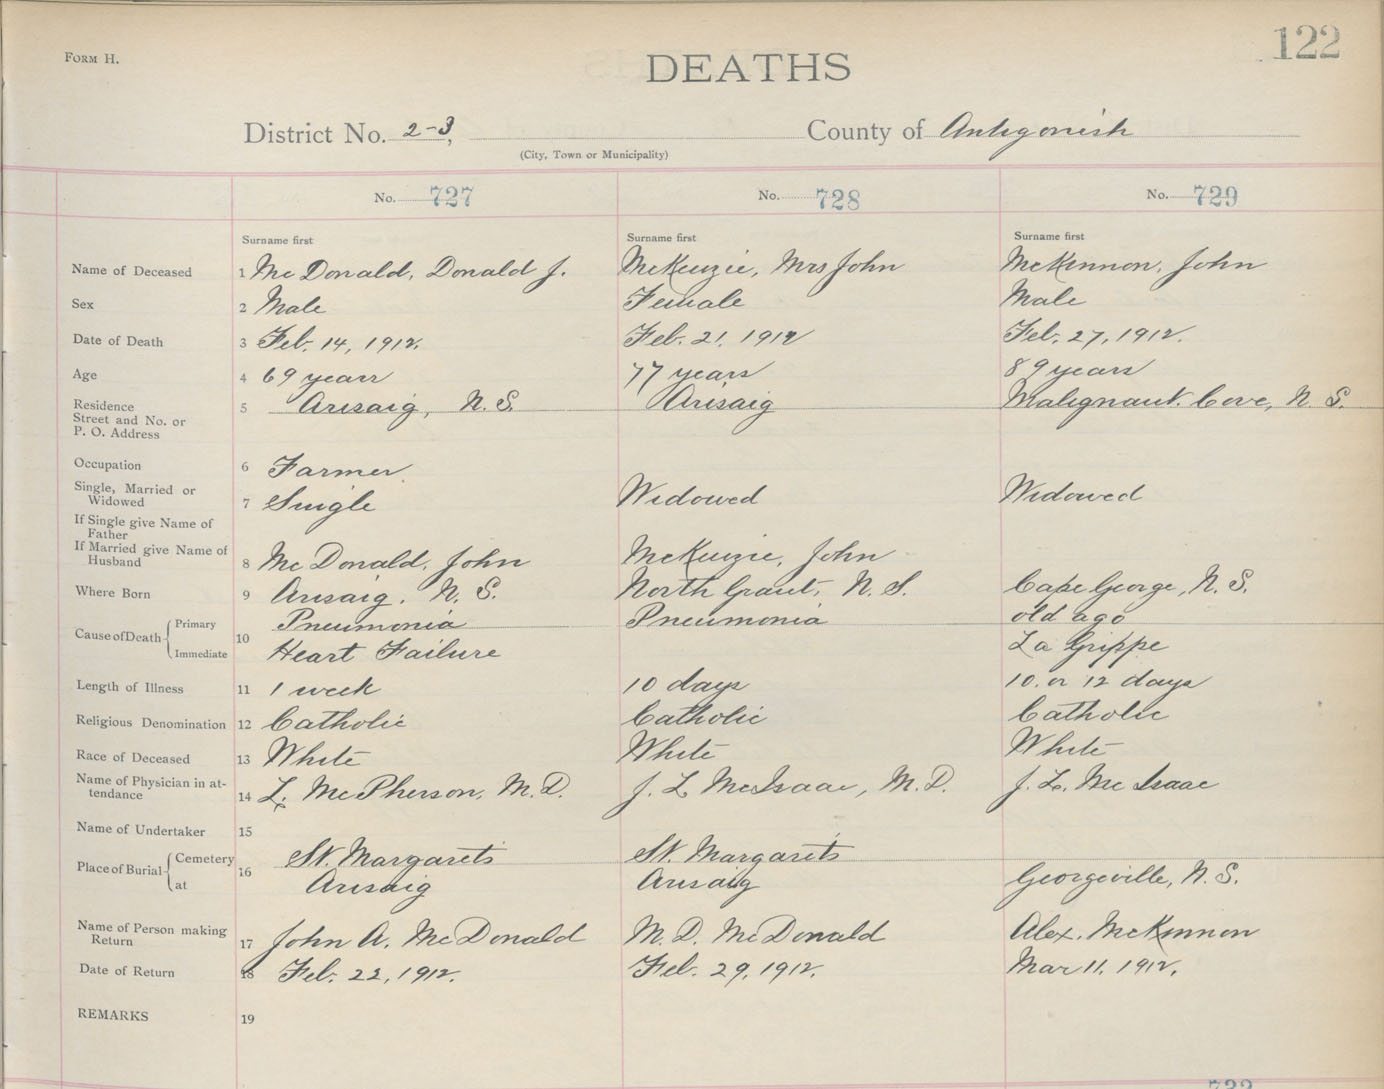 122
FORM H.
DEATHS
District No. 2-3, County of Antigonish
(City, Town or Municipality)
No. 727 No. 728 No. 729
Surname first Surname first Surname first
Name of Deceased 1 McDonald, Donald J. McKenzie, Mrs John McKinnon, John
Sex 2 Male Female Male
Date of Death 3 Feb. 14, 1912. Feb. 21, 1912 Feb. 27, 1912.
Age 4 69 years 77 years 89 years
Residence 5 Arisaig, N.S. Arisaig Malignant Cove, N.S.
Street and No. or
P. O. Address
Occupation 6 Farmer
Single, Married or
Widowed 7 Single Widowed Widowed
If Single give Name of
Father
If Married give Name of
Husband 8 McDonald, John McKenzie, John
Where Born 9 Arisaig, N.S. North Grant, N.S. Cape George, N.S.
Cause of Death Primary 10 Pneumonia Pneumonia old age
Immediate Heart Failure La Grippe
Length of Illness 11 1 week 10 days 10 or 12 days
Religious Denomination 12 Catholic Catholic Catholic
Race of Deceased 13 White White White
Name of Physician in at-
tendance 14 L. McPherson, M.D. J. L. McIsaac, M.D. J. L. McIsaac
Name of Undertaker 15
Place of Burial Cemetery 16 St. Margarets St. Margarets
at Arisaig Arisaig Georgeville, N.S.
Name of Person making
Return 17 John A. McDonald M. D. McDonald Alex. McKinnon
Date of Return 18 Feb. 22, 1912. Feb. 29, 1912. Mar 11, 1912.
REMARKS 19